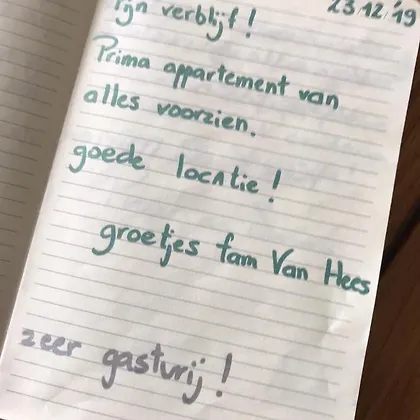 Fijn verblijf! 23/12/'19
Prima appartement van
alles voorzien.
goede locatie!
groetjes fam Van Hees
zeer gastvrij!